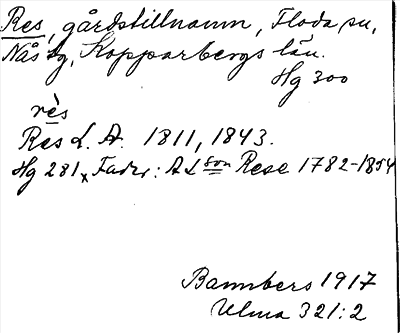 Res, gårdstillnamn, Floda sn,
Nås dg, Kopparbergs län.
Hg 300
rès
Res L. A. 1811, 1843.
Hg 281, Fader: A L son Rese 1782-1854
Bannbers 1917
Ulma 321:2